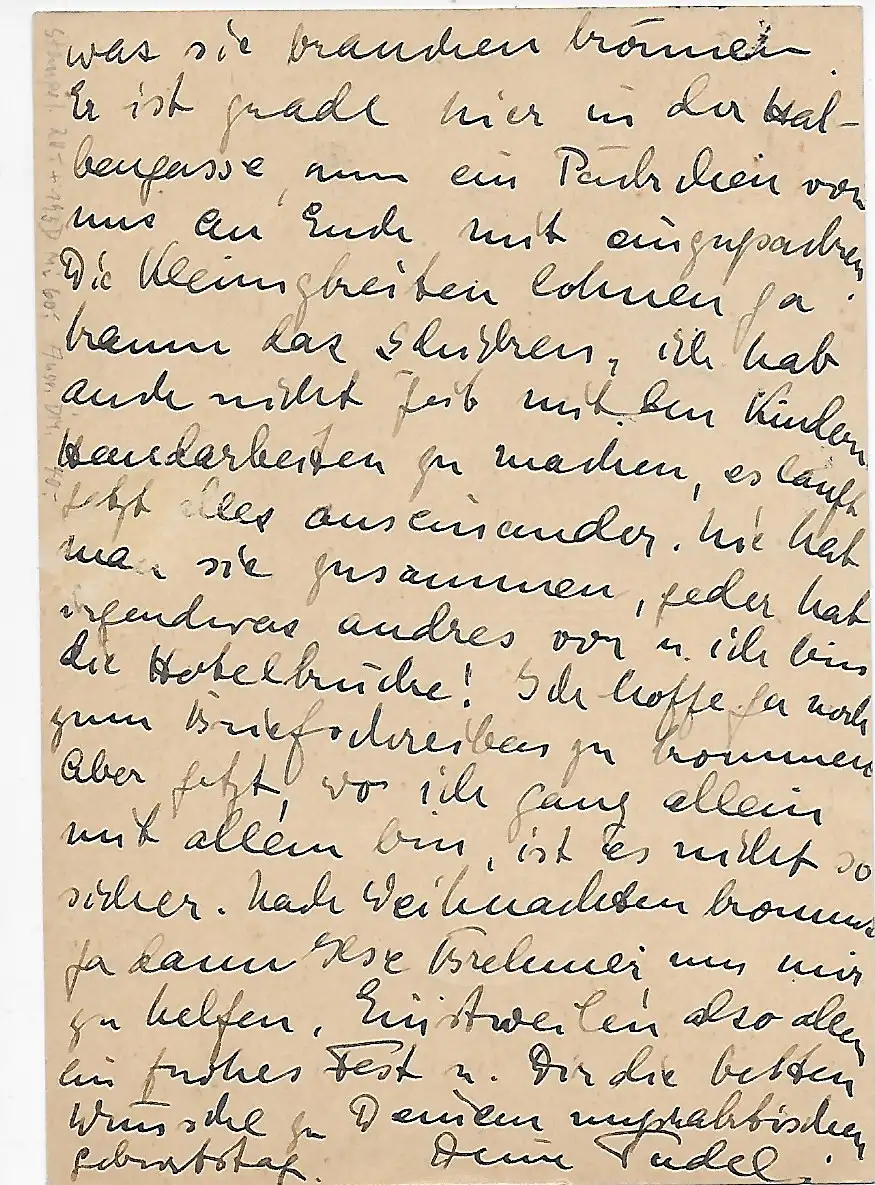 was sie brauchen können.
Er ist grade hier in der Hal-
bengasse, um ein Päckchen von
uns an Ende mit einzupacken.
Die Kleinigkeiten lohnen ja
kaum das Schicken, ich hab
auch nicht Zeit mit den Kindern
Handarbeiten zu machen, es läuft
jetzt alles auseinander. Nie hat
man sie zusammen, jeder hat
irgendwas andres vor u. ich bin
die Ich hoffe ja noch
zum Briefschreiben zu kommen
aber jetzt, wo ich ganz allein
mit allem bin, ist es nicht so
sicher. Nach Weihnachten kommt
ja dann Ilse Brehmer um mir
zu helfen. Einstweilen also allen
ein frohes Fest u. Dir die besten
Wünsche zu Deinem
Geburtstag. Deine